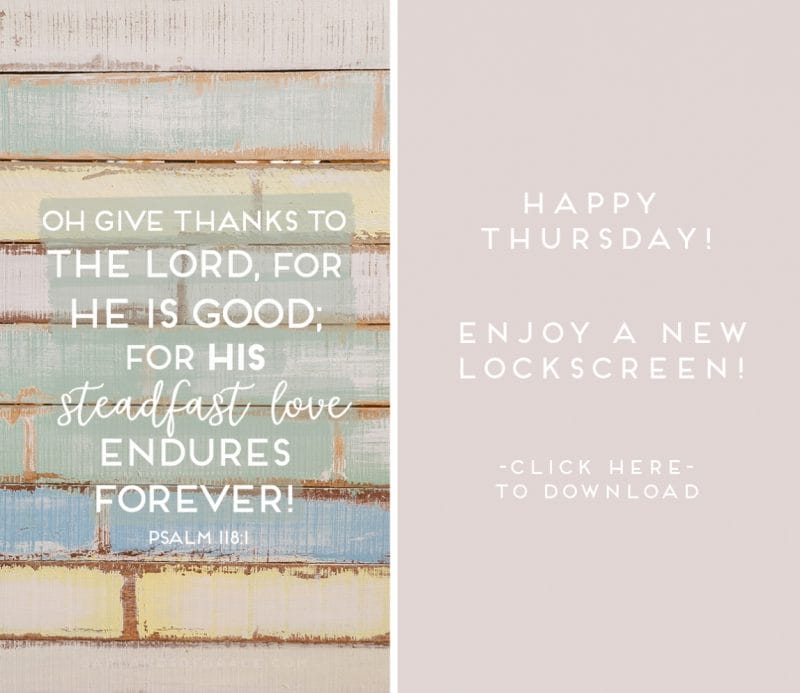 OH GIVE THANKS TO
THE LORD, FOR
HE IS GOOD;
FOR HIS
steadfast love
ENDURES
FOREVER!
PSALM 118:1
HAPPY
THURSDAY!
ENJOY A NEW
LOCKSCREEN!
-CLICK HERE-
TO DOWNLOAD